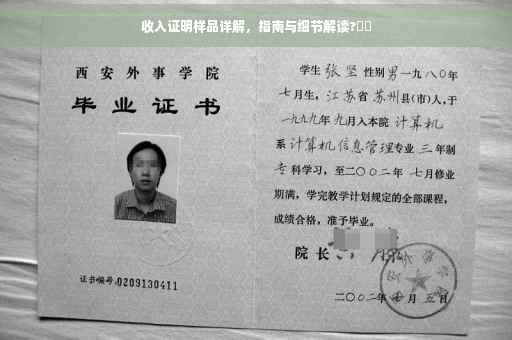 收入证明样品详解，指南与细节解读?
西安外事学院
毕业证书
证书编号:0209130411
学生 张坚 性别 男 一九八〇年
七月生，江苏省 苏州县(市)人，于
一九九九年 九月入本院 计算机
系 计算机信息管理专业 三 年制
专 科学习，至二〇〇二年 七月修业
期满，学完教学计划规定的全部课程，
成绩合格，准予毕业。
院长
二〇〇二年 七 月 五 日